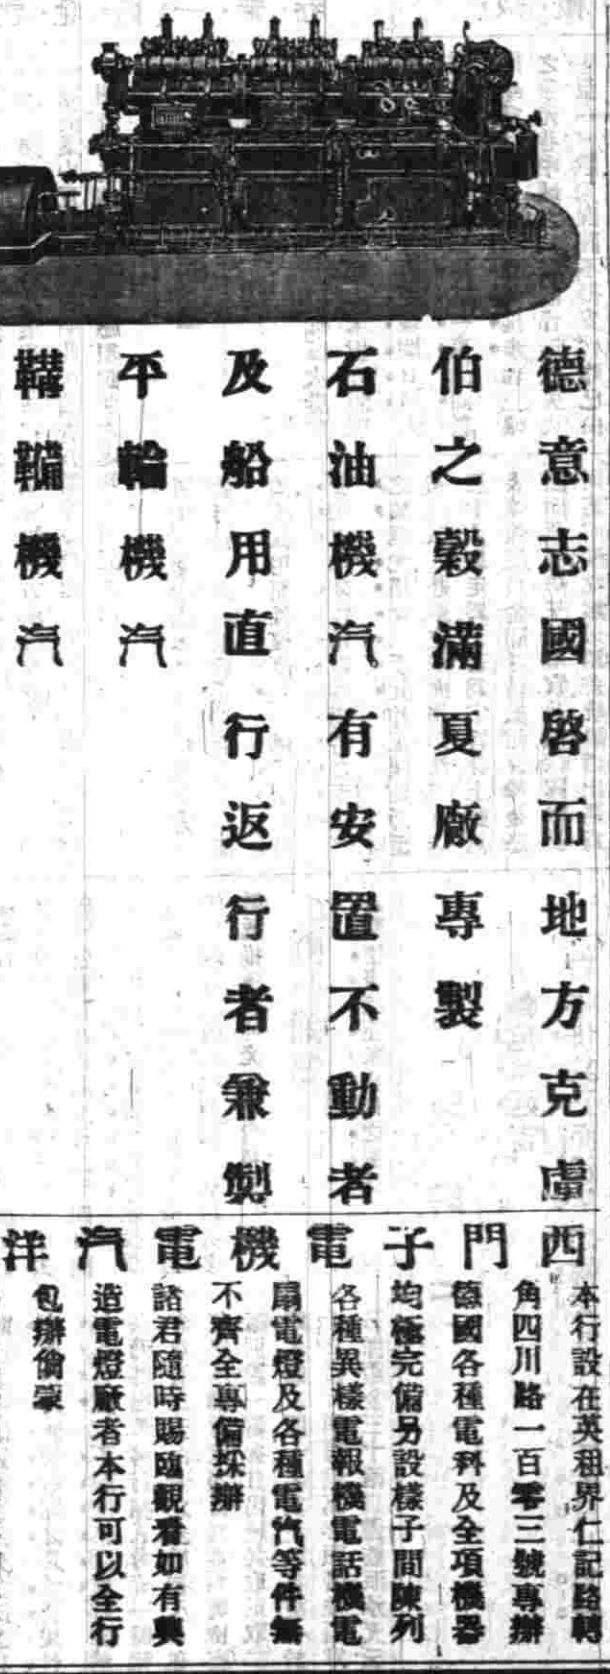 德意志國啓而地方克虜
伯之穀滿夏廠專製
石油機汽有安置不動者
及船用直行返行者兼製
平輪機汽
鞲鞴機汽
西門子電機電汽洋
本行設在英租界仁記路轉
角四川路一百零三號專辦
德國各種電科及全項機器
均極完備另設樣子間陳列
各種異樣電報機電話機電
扇電燈及各種電汽等件無
不齊全專備採辦
諸君隨時賜臨觀看如有興
造電燈廠者本行可以全行
包辦倘蒙